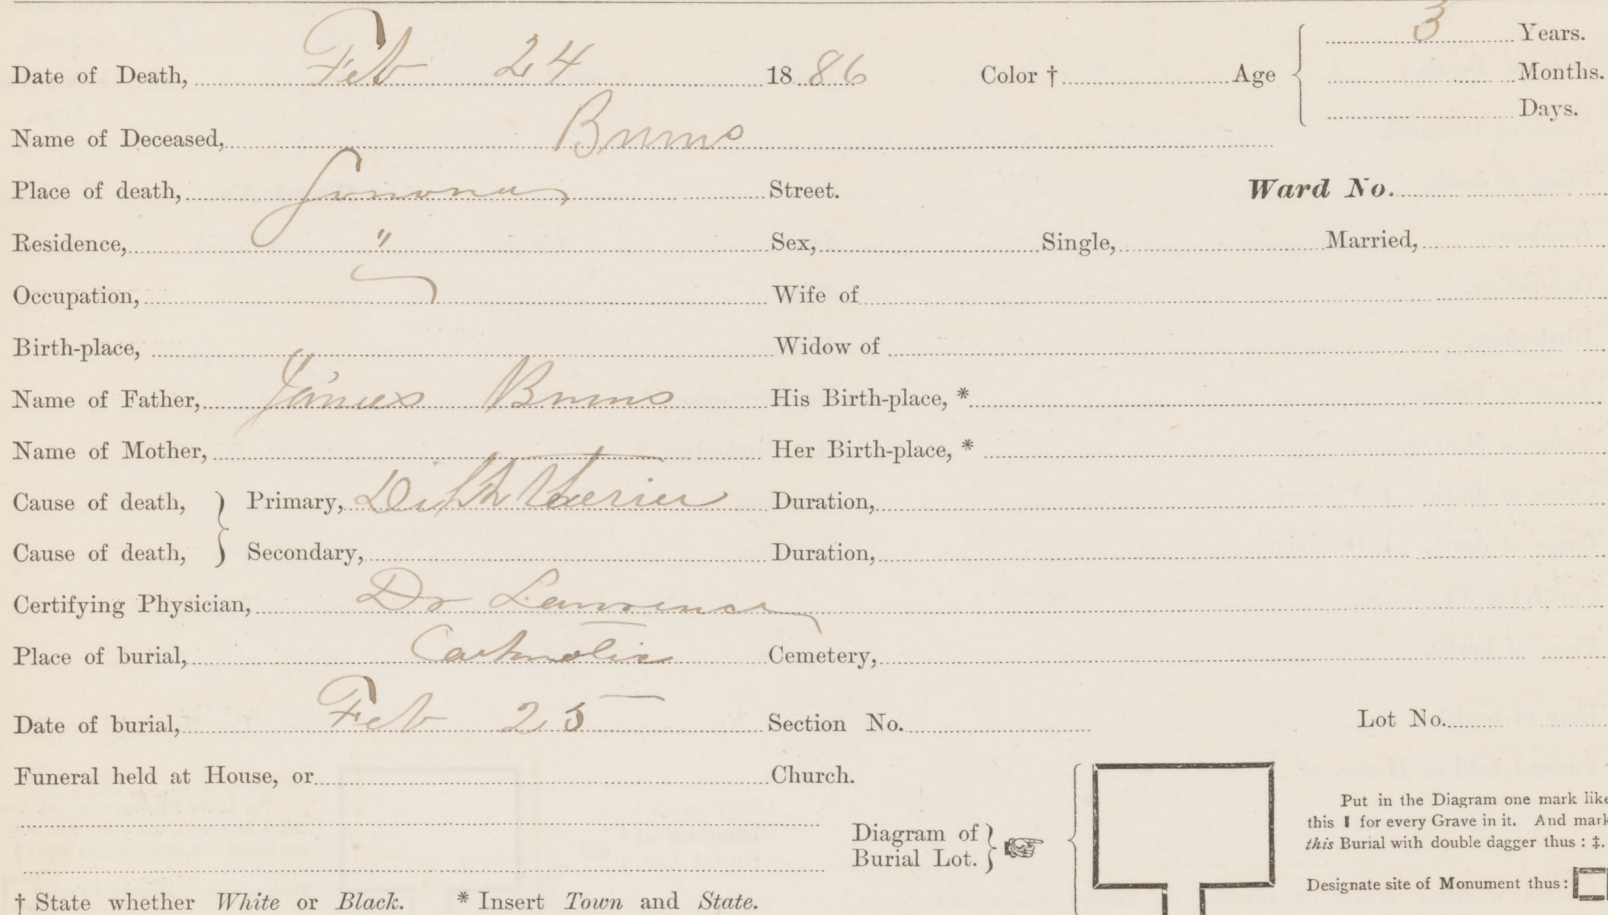 3 Years.
Date of Death, Feb 24 1886 Color † Age Months.
Days.
Name of Deceased, Burns
Place of death, Sonoma Street. Ward No.
Residence, " Sex, Single, Married,
Occupation, Wife of
Birth-place, Widow of
Name of Father, James Burns His Birth-place, *
Name of Mother, Her Birth-place, *
Cause of death, } Primary, Diphtheria Duration,
Cause of death, } Secondary, Duration,
Certifying Physician, Dr Lawrence
Place of burial, Catholic Cemetery,
Date of burial, Feb 25 Section No. Lot No.
Funeral held at House, or Church.
Put in the Diagram one mark like
this ❙ for every Grave in it. And mark
this Burial with double dagger thus : ‡.
Diagram of
Burial Lot.
Designate site of Monument thus :
† State whether White or Black. * Insert Town and State.